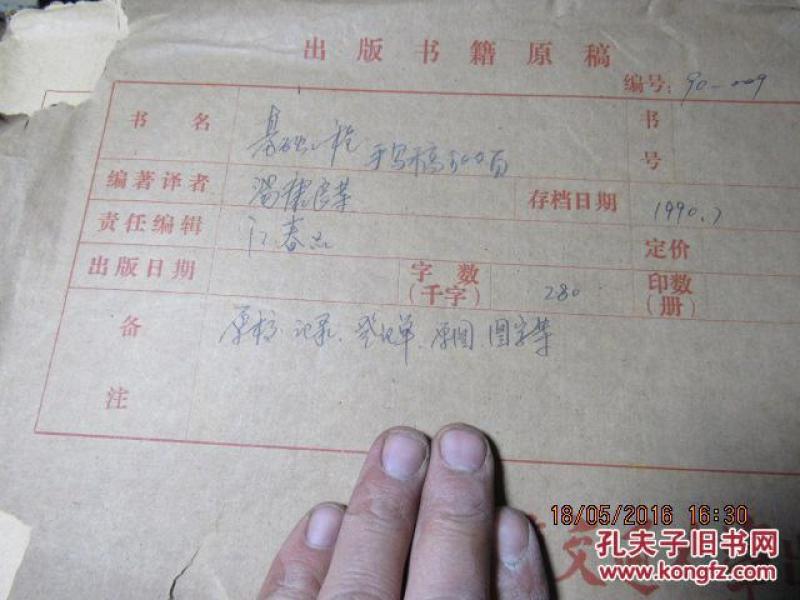 出版书籍原稿
编号：90—009
书名 基础工程 手写稿300页 书号
编著译者 存档日期 1990.7
责任编辑 江春 定价
出版日期 字数（千字） 280 印数（册）
备注 原稿、记录、登记单、原图、图字等
18/05/2016 16:30
交通
孔夫子旧书网
www.kongfz.com